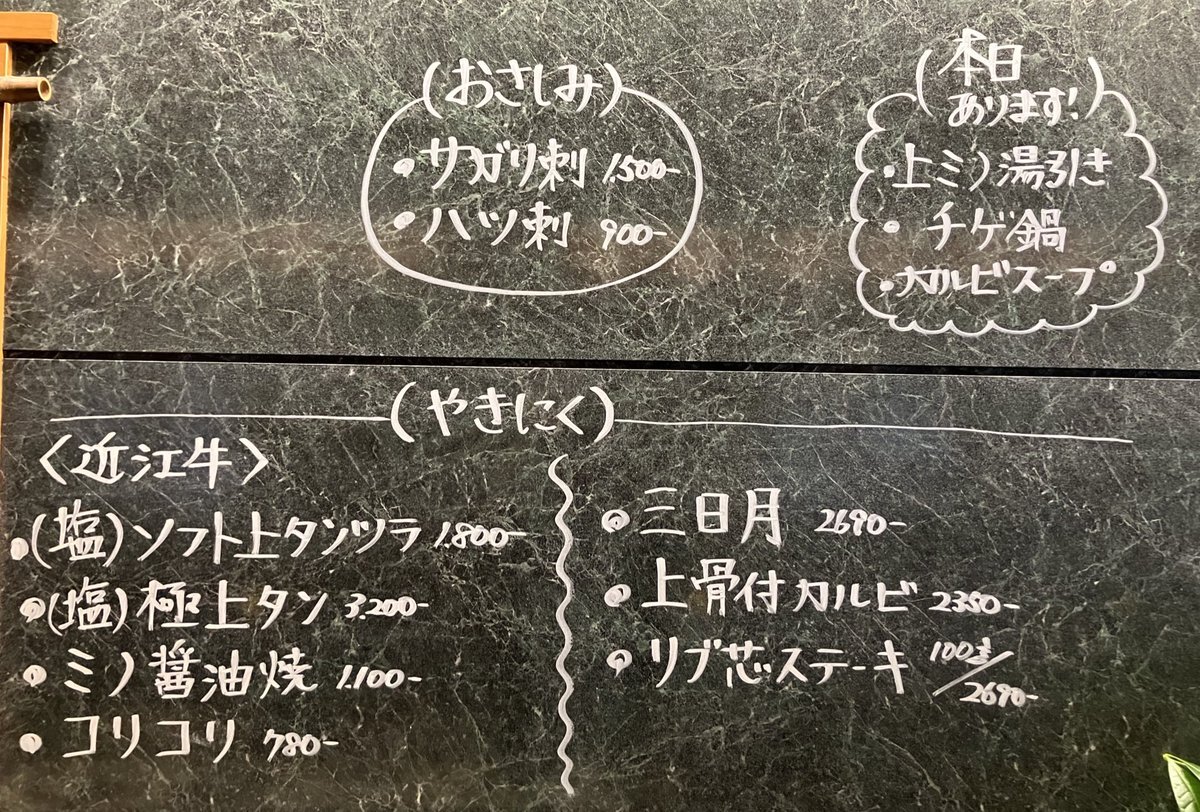 (おさしみ)
・サガリ刺 1.500-
・ハツ刺 900-
(本日
あります!)
・上ミノ湯引き
・チゲ鍋
・カルビスープ
(やきにく)
〈近江牛〉
・(塩)ソフト上タンツラ 1.800-
・(塩)極上タン 3.200-
・ミノ醤油焼 1.100-
・コリコリ 780-
・三日月 2690-
・上骨付カルビ 2380-
・リブ芯ステーキ 100g/2690-